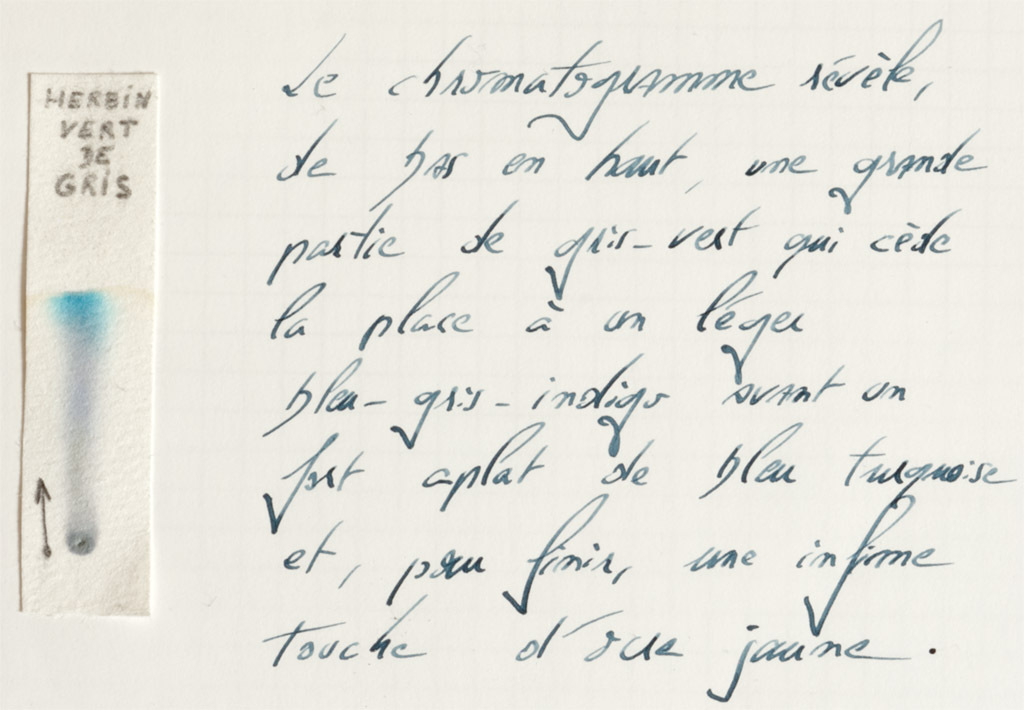 HERBIN
VERT
DE
GRIS
Le chromatogramme révèle,
de bas en haut, une grande
partie de gris-vert qui cède
la place à un léger
bleu-gris-indigo avant un
fort aplat de bleu turquoise
et, pour finir, une infime
touche d'ocre jaune.